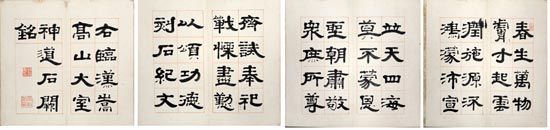 春生萬物
膚寸起雲
潤施源流
鴻濛沛宣
並天四海
莫不蒙恩
聖朝肅敬
衆庶所尊
齊誡奉祀
戰慄盡懃
以頌功德
刻石紀文
右臨漢嵩
高山大室
神道石闕
銘